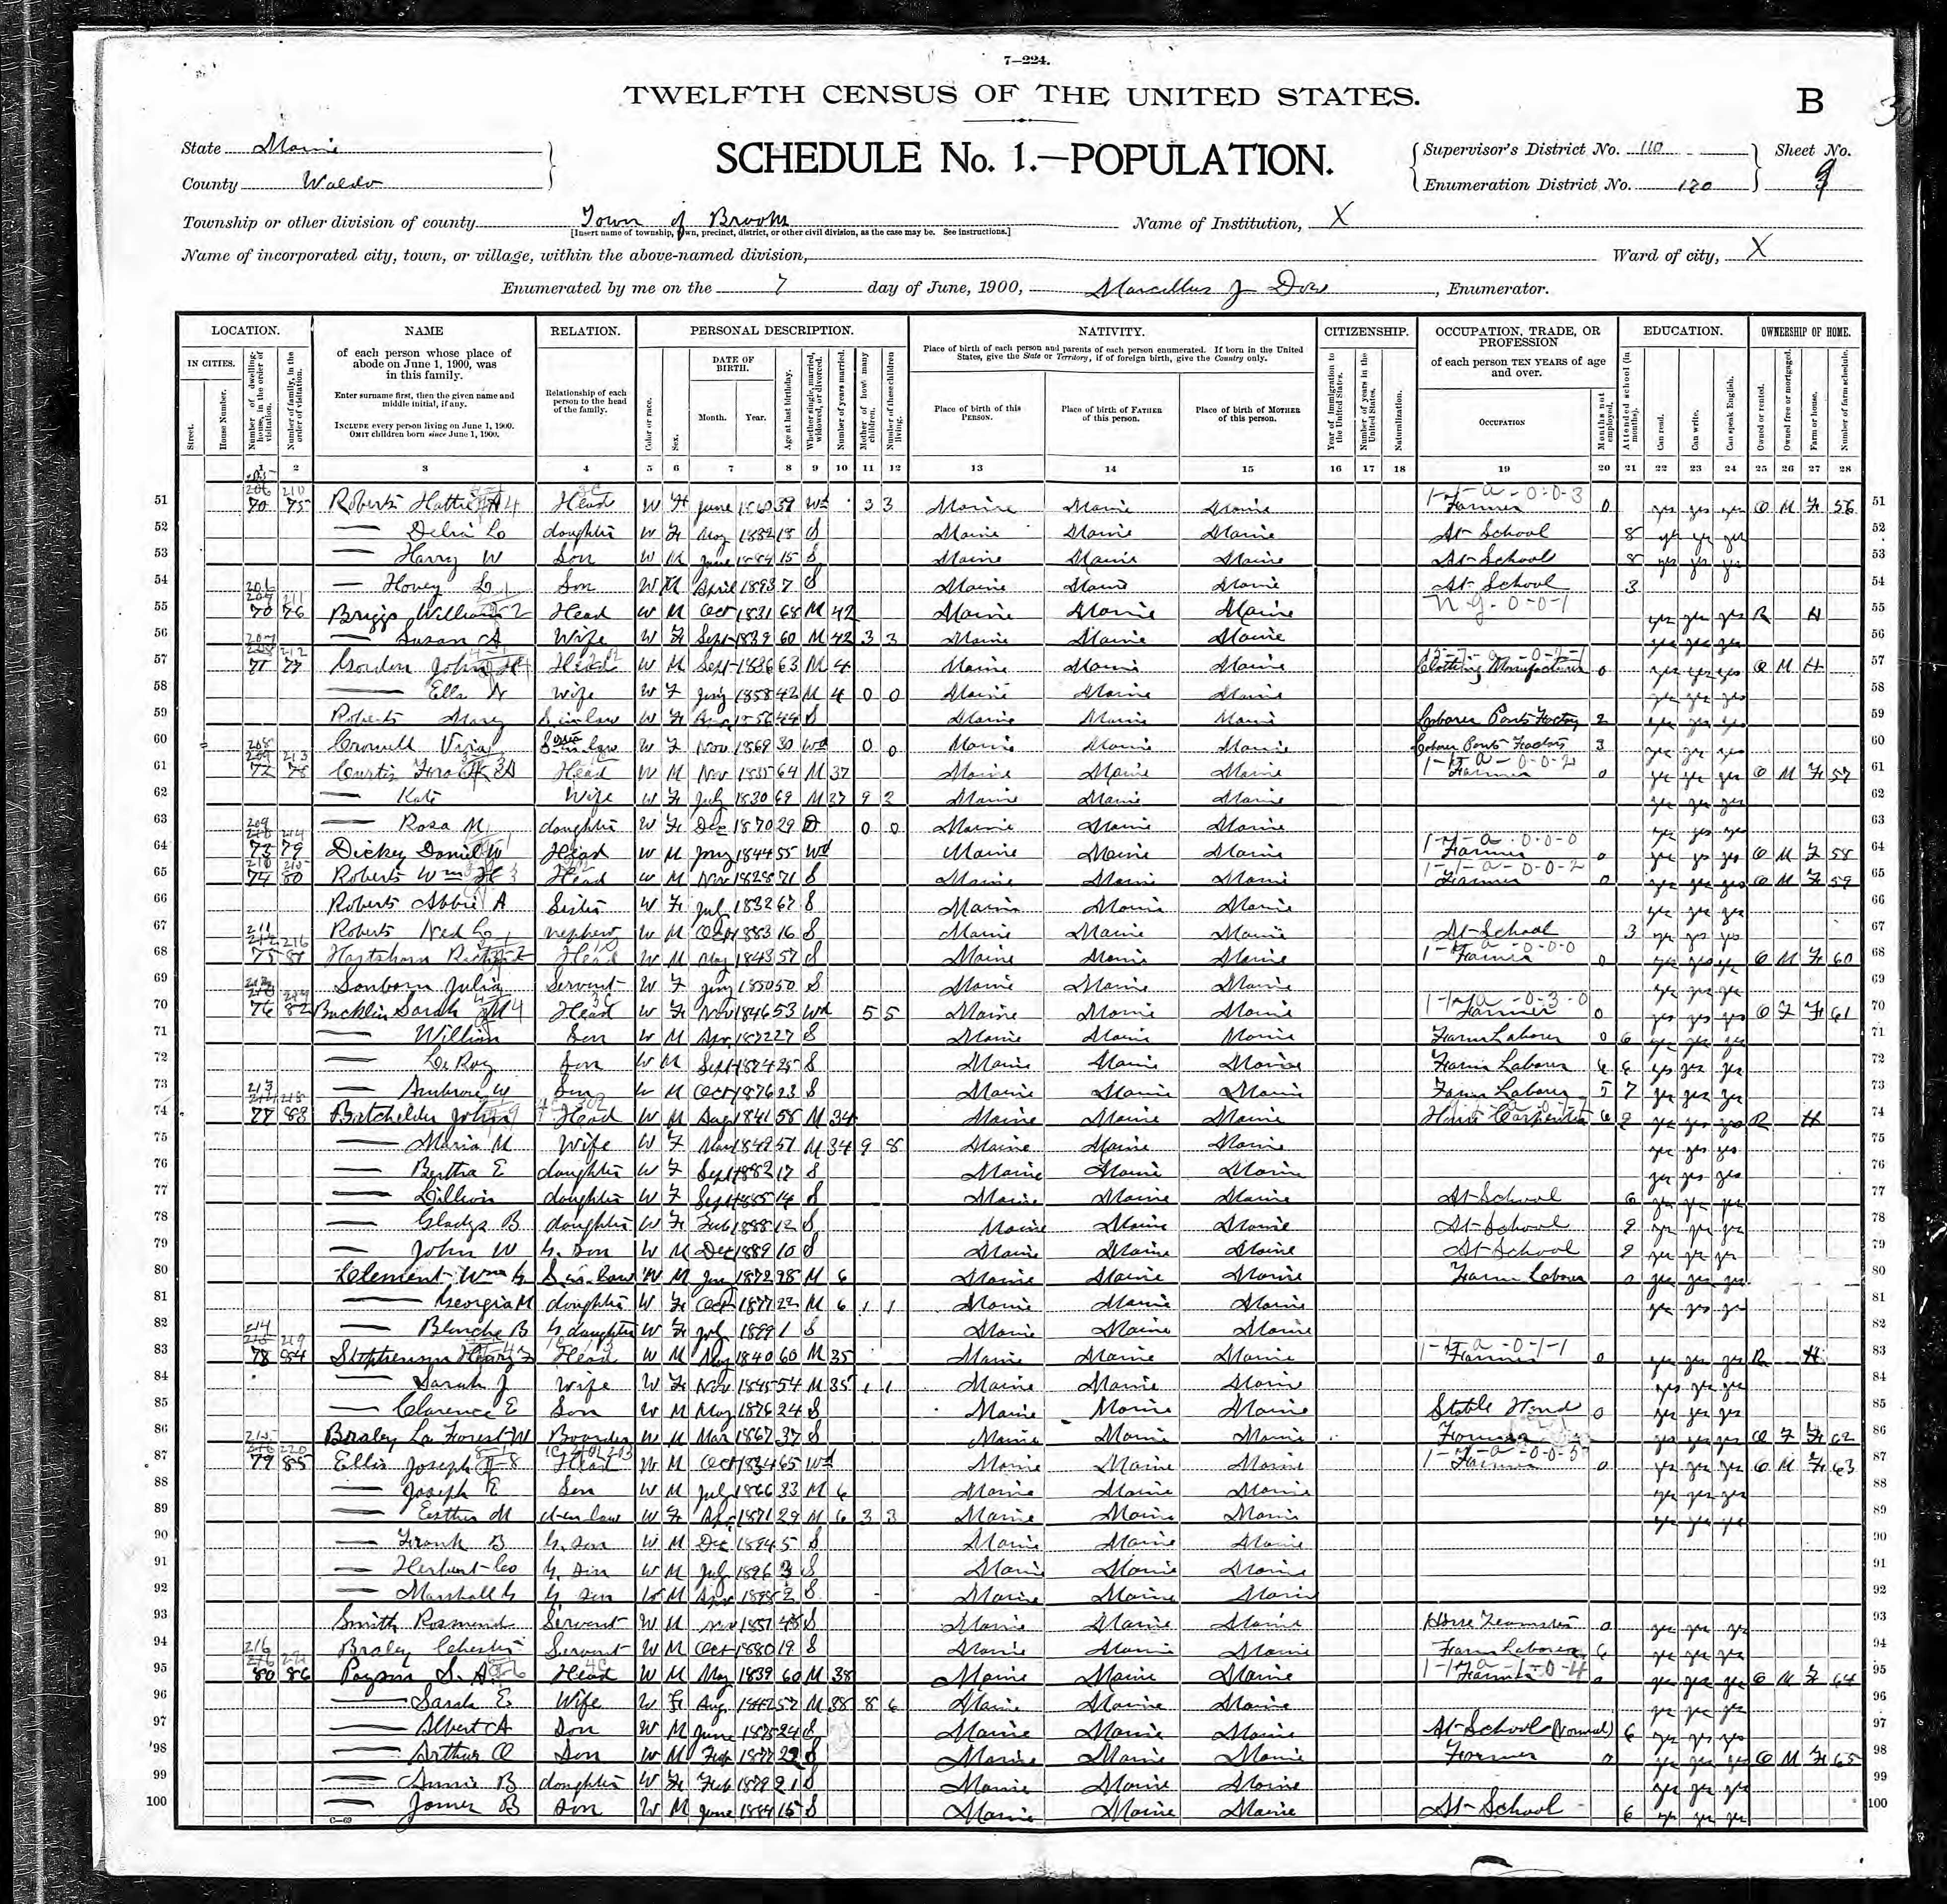 7—224.
TWELFTH CENSUS OF THE UNITED STATES.
B
State Maine
SCHEDULE No. 1.—POPULATION.
Supervisor's District No. 110
Sheet No.
County Waldo
Enumeration District No. 120
9
Township or other division of county Town of Brooks
Name of Institution, X
[Insert name of township, town, precinct, district, or other civil division, as the case may be. See instructions.]
Name of incorporated city, town, or village, within the above-named division,
Ward of city, X
Enumerated by me on the 7 day of June, 1900, Marcellus J Dow, Enumerator.
LOCATION. NAME RELATION. PERSONAL DESCRIPTION. NATIVITY. CITIZENSHIP. OCCUPATION, TRADE, OR PROFESSION EDUCATION. OWNERSHIP OF HOME.
IN CITIES.
Street.
House Number.
Number of dwelling-house, in the order of visitation.
Number of family, in the order of visitation.
of each person whose place of abode on June 1, 1900, was in this family.
Enter surname first, then the given name and middle initial, if any.
INCLUDE every person living on June 1, 1900.
OMIT children born since June 1, 1900.
Relationship of each person to the head of the family.
Color or race.
Sex.
DATE OF BIRTH.
Month. Year.
Age at last birthday.
Whether single, married, widowed, or divorced.
Number of years married.
Mother of how many children.
Number of these children living.
Place of birth of each person and parents of each person enumerated. If born in the United States, give the State or Territory, if of foreign birth, give the Country only.
Place of birth of this PERSON.
Place of birth of FATHER of this person.
Place of birth of MOTHER of this person.
Year of immigration to the United States.
Number of years in the United States.
Naturalization.
of each person TEN YEARS of age and over.
OCCUPATION
Months not employed.
Attended school (in months).
Can read.
Can write.
Can speak English.
Owned or rented.
Owned free or mortgaged.
Farm or house.
Number of farm schedule.
1 2 3 4 5 6 7 8 9 10 11 12 13 14 15 16 17 18 19 20 21 22 23 24 25 26 27 28
51 70 75 Roberts Hattie A Head W F June 1860 39 Wd 3 3 Maine Maine Maine Farmer 0 yes yes yes O M F 56 51
52 Delia daughter W F May 1882 18 S Maine Maine Maine At School 8 yes yes yes 52
53 Harry W Son W M June 1884 15 S Maine Maine Maine At School 8 yes yes yes 53
54 Son W M April 1893 7 S Maine Maine Maine At School 3 54
55 70 76 Briggs William Head W M Oct 1831 68 M 42 Maine Maine Maine yes yes yes R H 55
56 Susan A Wife W F Sept 1839 60 M 42 3 3 Maine Maine Maine yes yes yes 56
57 71 77 Gordon John H Head W M Sept 1836 63 M 4 Maine Maine Maine Clothing Manufacturer 0 yes yes yes O M H 57
58 Ella Wife W F 1858 42 M 4 0 0 Maine Maine Maine yes yes yes 58
59 Roberts Mary S in law W F S Maine Maine Maine Laborer Pants Factory 2 yes yes yes 59
60 Crowell W F Nov 1869 30 Wd 0 0 Maine Maine Maine Pants Factory 3 yes yes yes 60
61 72 78 Curtis Head W M Nov 1835 64 M 37 Maine Maine Maine Farmer 0 yes yes yes O M F 57 61
62 Kate Wife W F July 1830 69 M 37 9 3 Maine Maine Maine yes yes yes 62
63 Rosa M daughter W F Dec 1870 29 D 0 0 Maine Maine Maine yes yes yes 63
64 73 79 Dickey Daniel W Head W M 1844 55 Wd Maine Maine Maine Farmer 0 yes yes yes O M F 58 64
65 74 80 Roberts Wm H Head W M Nov 1828 71 S Maine Maine Maine Farmer 0 yes yes yes O M F 59 65
66 Roberts Abbie A Sister W F July 1832 67 S Maine Maine Maine yes yes yes 66
67 Roberts Ned nephew W M Oct 1883 16 S Maine Maine Maine At School 3 yes yes yes 67
68 75 81 Head W M May 1843 57 S Maine Maine Maine Farmer 0 yes yes yes O M F 60 68
69 Sanborn Julia Servant W F 1850 50 S Maine Maine Maine yes yes yes 69
70 76 82 Bucklin Sarah M Head W F Nov 1846 53 Wd 5 5 Maine Maine Maine Farmer 0 yes yes yes O F F 61 70
71 William Son W M 27 S Maine Maine Maine Farm Laborer 0 6 yes yes yes 71
72 Le Roy Son W M Sept 1874 25 S Maine Maine Maine Farm Laborer yes yes yes 72
73 Ambrose W Son W M Oct 1876 23 S Maine Maine Maine Farm Laborer 5 7 yes yes yes 73
74 77 83 Batchelder John Head W M Aug 1841 58 M 34 Maine Maine Maine House Carpenter yes yes yes R H 74
75 Maria M Wife W F 1849 51 M 34 9 8 Maine Maine Maine yes yes yes 75
76 Bertha E daughter W F Sept 1882 17 S Maine Maine Maine yes yes yes 76
77 Lillian daughter W F Sept 1885 14 S Maine Maine Maine At School 6 yes yes yes 77
78 Gladys B daughter W F Feb 1888 12 S Maine Maine Maine At School yes yes yes 78
79 John W G. Son W M Dec 1889 10 S Maine Maine Maine At School yes yes yes 79
80 Clement Wm S in law W M Jan 1872 28 M 6 Maine Maine Maine Farm Laborer yes yes yes 80
81 Georgia M daughter W F Oct 1877 22 M 6 1 1 Maine Maine Maine yes yes yes 81
82 Blanche B G daughter W F July 1 S Maine Maine Maine 82
83 78 84 Stephenson Henry Head W M May 1840 60 M 35 Maine Maine Maine Farmer 0 yes yes yes R H 83
84 Sarah J Wife W F Nov 1845 54 M 35 1 1 Maine Maine Maine yes yes yes 84
85 Clarence E Son W M May 1876 24 S Maine Maine Maine Stable Hand 0 yes yes yes 85
86 Braley La Forest W Boarder W M Mar S Maine Maine Maine Farmer yes yes yes O F F 62 86
87 79 85 Ellis Joseph Head W M Oct 1834 65 Wd Maine Maine Maine Farmer 0 yes yes yes O M F 63 87
88 Joseph E Son W M July 1866 33 M 6 Maine Maine Maine yes yes yes 88
89 Esther M d in law W F 1871 29 M 6 3 3 Maine Maine Maine yes yes yes 89
90 Frank B G. Son W M Dec 1894 5 S Maine Maine Maine 90
91 Herbert G. Son W M July 1896 3 S Maine Maine Maine 91
92 Marshall G G Son W M 1898 2 S Maine Maine Maine 92
93 Smith Rosmond Servant W M S Maine Maine Maine Teamster 0 yes yes yes 93
94 Braley Chester Servant W M Oct 1880 19 S Maine Maine Maine Farm Laborer yes yes yes 94
95 80 86 Payson S. A. Head W M May 1839 60 M 38 Maine Maine Maine Farmer yes yes yes O M F 64 95
96 Sarah E Wife W F Aug 1842 57 M 38 8 6 Maine Maine Maine yes yes yes 96
97 Albert A Son W M June 1875 24 S Maine Maine Maine At School (Normal) 6 yes yes yes 97
98 Arthur O Son W M Feb 1877 S Maine Maine Maine Farmer 0 yes yes yes O M F 65 98
99 Annie B daughter W F Feb 1879 21 S Maine Maine Maine yes yes yes 99
100 James B Son W M June 1884 15 S Maine Maine Maine At School 6 yes yes yes 100